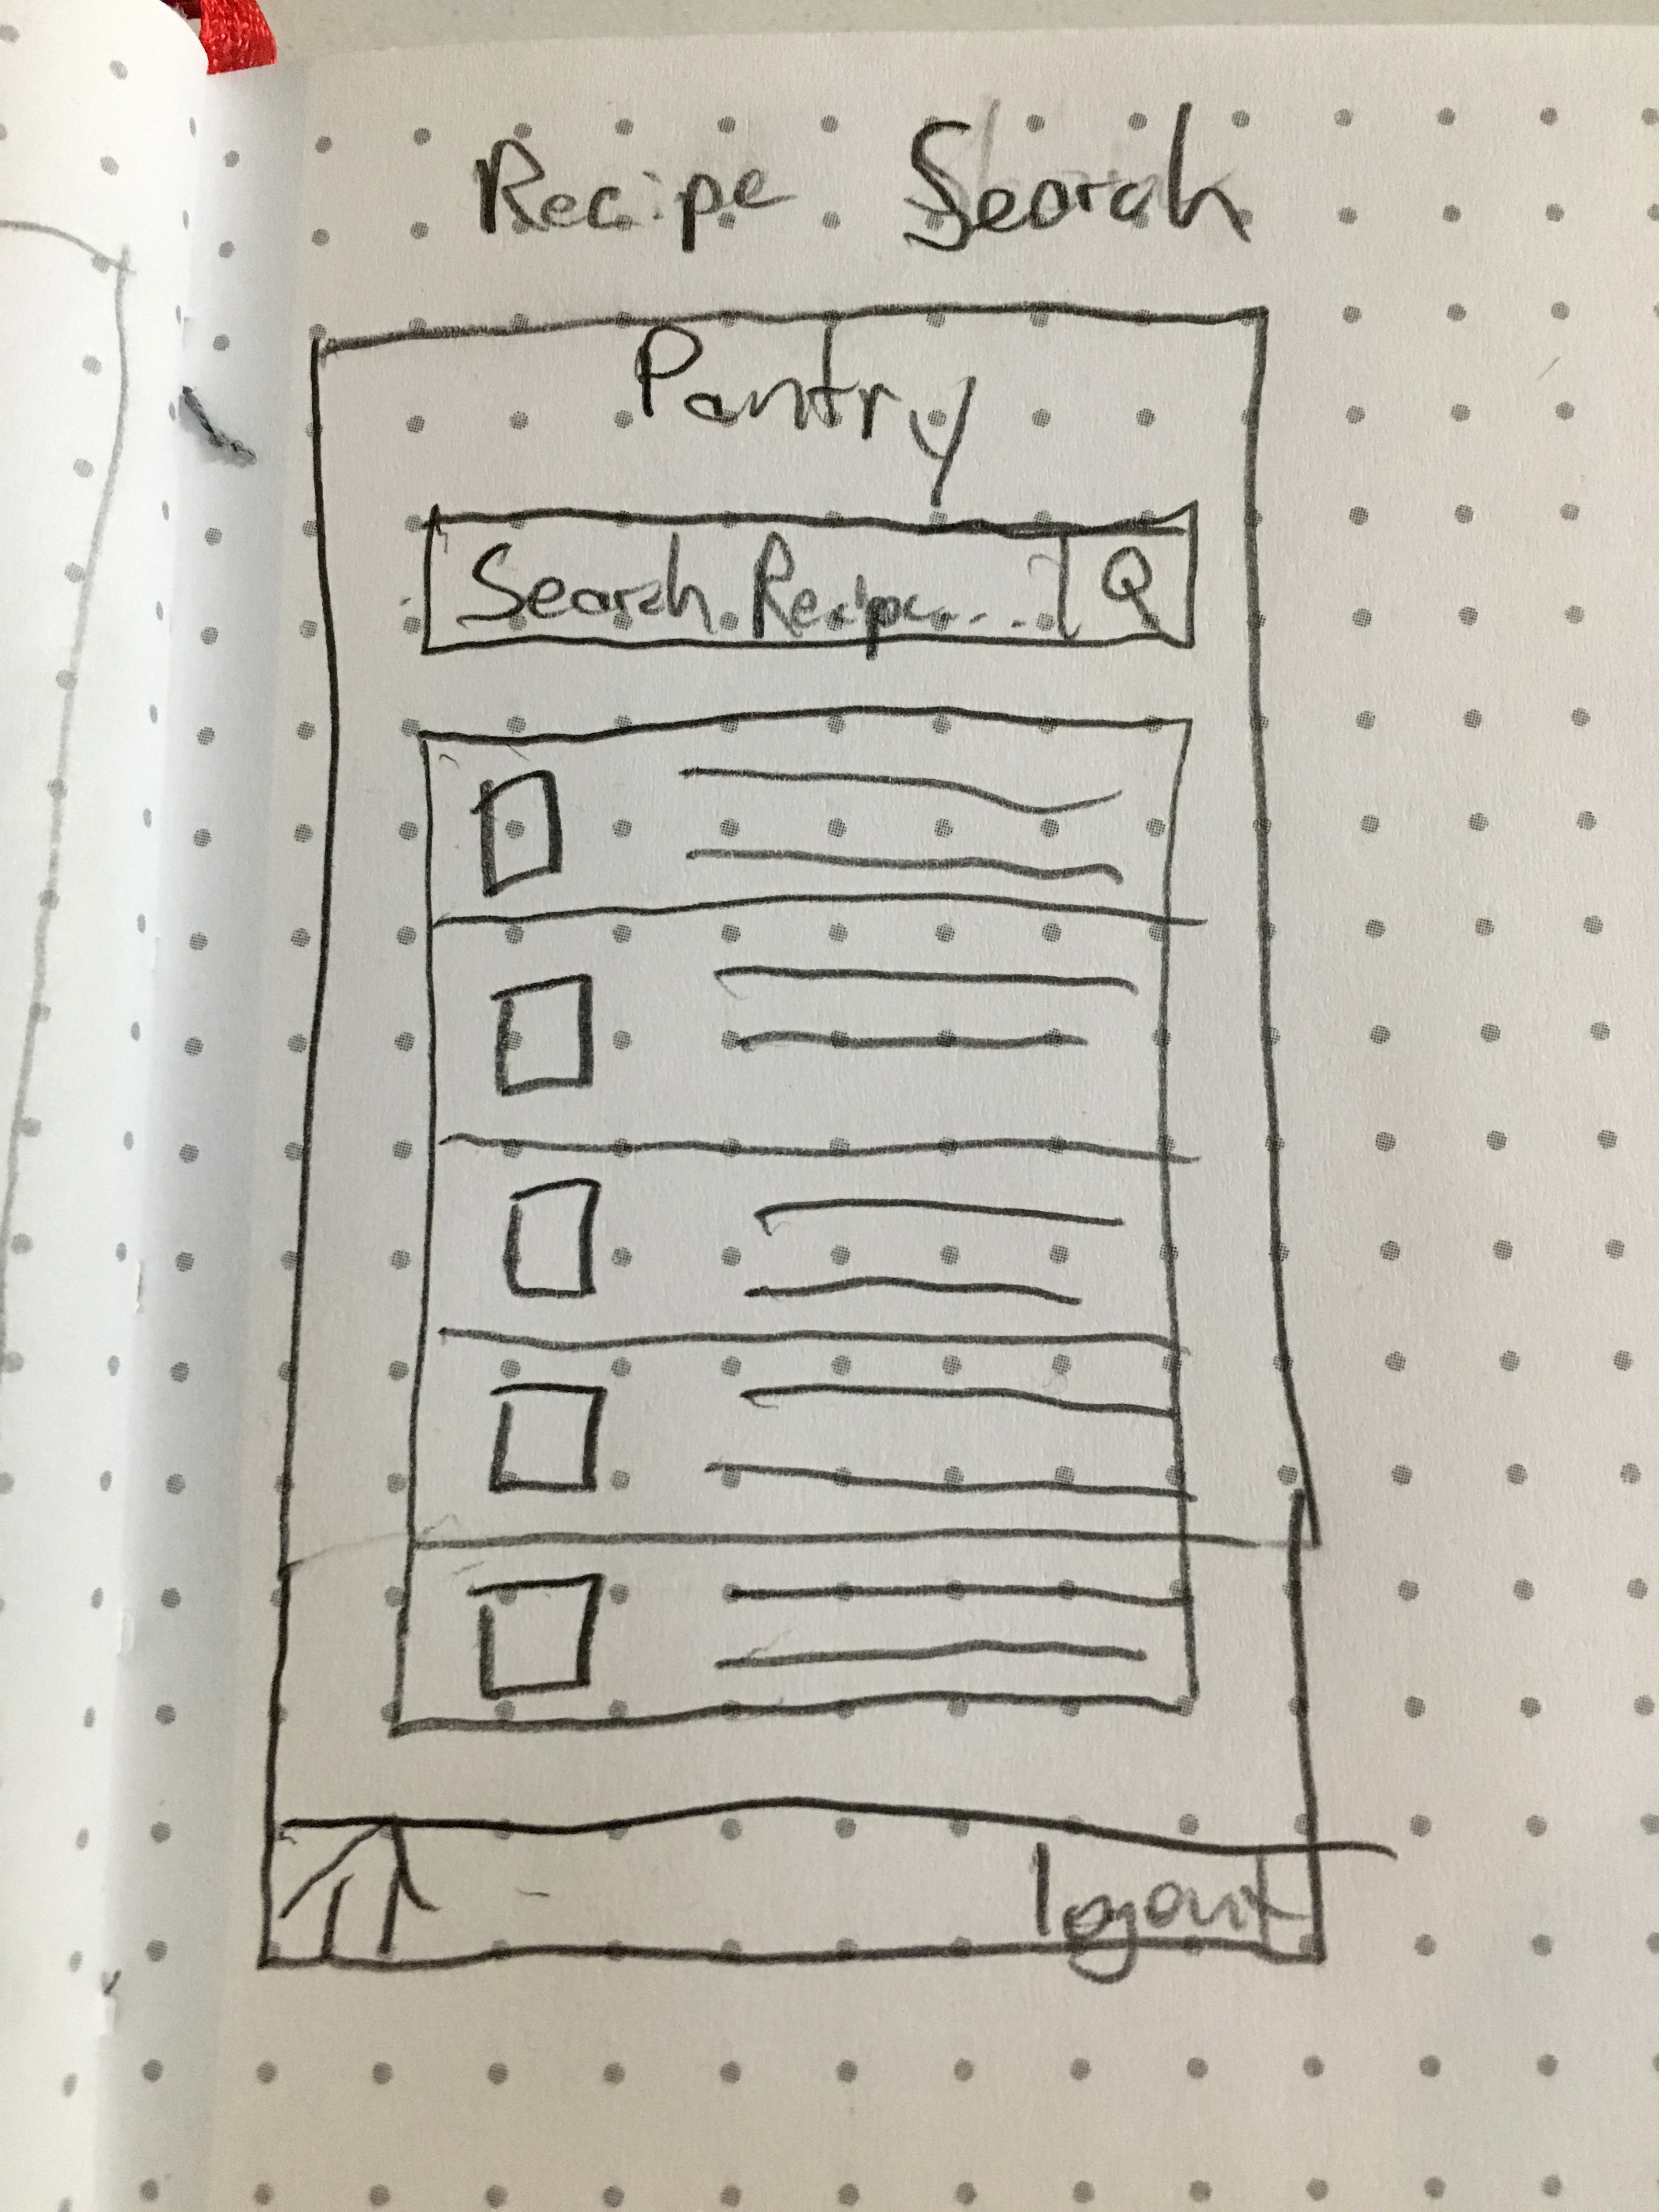 Recipe Search
Pantry
Search Recipe...
logout